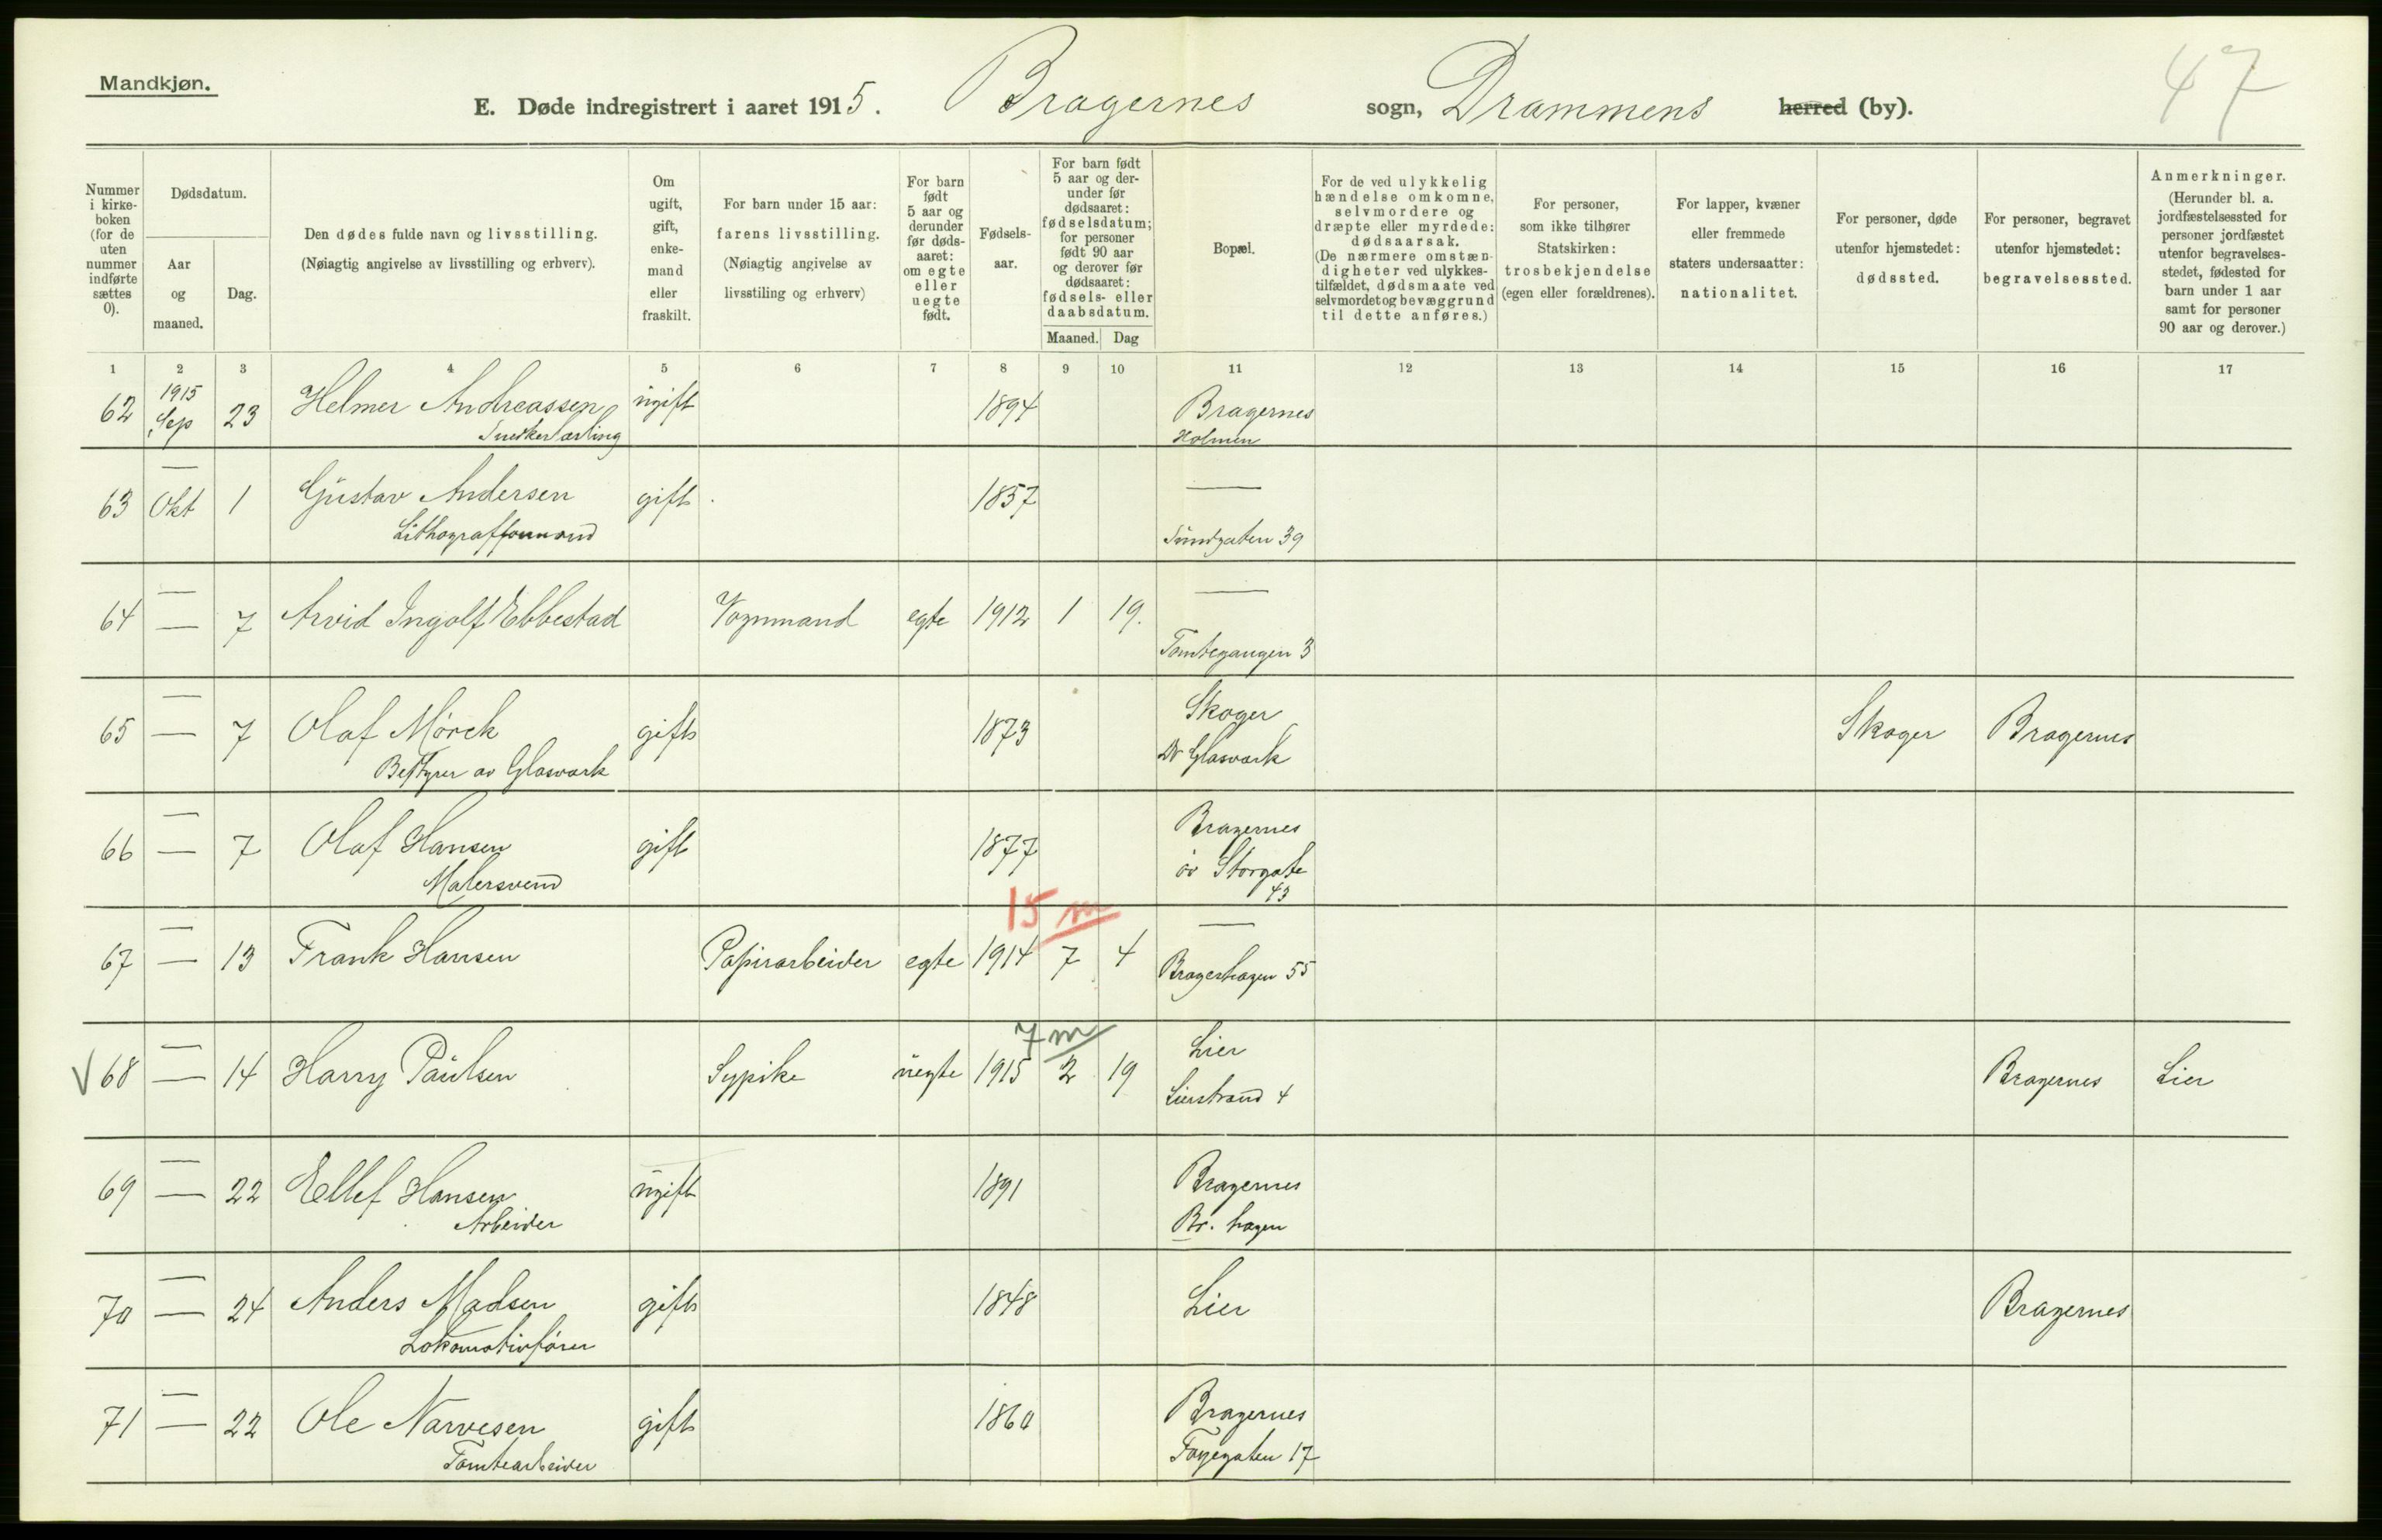 Mandkjøn.
47
E. Døde indregistrert i aaret 1915. Bragernes sogn, Drammens herred (by).
Nummer i kirke-boken (for de uten nummer indførte sættes 0).
Dødsdatum.
Aar og maaned.
Dag.
Den dødes fulde navn og livsstilling.
(Nøiagtig angivelse av livsstilling og erhverv).
Om ugift, gift, enke-mand eller fraskilt.
For barn under 15 aar:
farens livsstilling.
(Nøiagtig angivelse av
livsstiling og erhverv)
For barn født 5 aar og derunder før døds-aaret: om egte eller uegte født.
Fødsels-aar.
For barn født 5 aar og der-under før dødsaaret: fødselsdatum; for personer født 90 aar og derover før dødsaaret: fødsels- eller daabsdatum.
Maaned. Dag
Bopæl.
For de ved ulykkelig hændelse omkomne, selvmordere og dræpte eller myrdede: dødsaarsak. (De nærmere omstæn-digheter ved ulykkes-tilfældet, dødsmaate ved selvmordet og bevæggrund til dette anføres.)
For personer, som ikke tilhører Statskirken: trosbekjendelse (egen eller forældrenes).
For lapper, kvæner eller fremmede staters undersaatter: nationalitet.
For personer, døde utenfor hjemstedet: dødssted.
For personer, begravet utenfor hjemstedet: begravelsessted.
Anmerkninger.
(Herunder bl. a. jordfæstelsessted for personer jordfæstet utenfor begravelses-stedet, fødested for barn under 1 aar samt for personer 90 aar og derover.)
1 2 3 4 5 6 7 8 9 10 11 12 13 14 15 16 17
1915
62 Sep 23 Helmer Andreassen ugift 1894 Bragernes
Snedkerlærling Holmen
—
63 Okt 1 Gustav Andersen gift 1857 —
Lithografformand Sundgaten 39
—
64 — 7 Arvid Ingolf Ebbestad Vognmand egte 1912 1 19. —
Tomtegangen 3
—
65 — 7 Olaf Mörck gift 1873 Skoger Skoger Bragernes
Bestyrer av Glasværk Dr Glasværk
—
66 — 7 Olaf Hansen gift 1877 Bragernes
Malersvend öv Storgate
43
15 m
—
67 — 13 Frank Hansen Papirarbeider egte 1914 7 4 —
Bragerhagen 55
7 m
—
V 68 — 14 Harry Paulsen Sypike uegte 1915 2 19 Lier Bragernes Lier
Lierstrand 4
—
69 — 22 Ellef Hansen ugift 1891 Bragernes
Arbeider Br. hagen
—
70 — 24 Anders Madsen gift 1848 Lier Bragernes
Lokomotivförer
—
71 — 22 Ole Narvesen gift 1860 Bragernes
Tomtearbeider 17